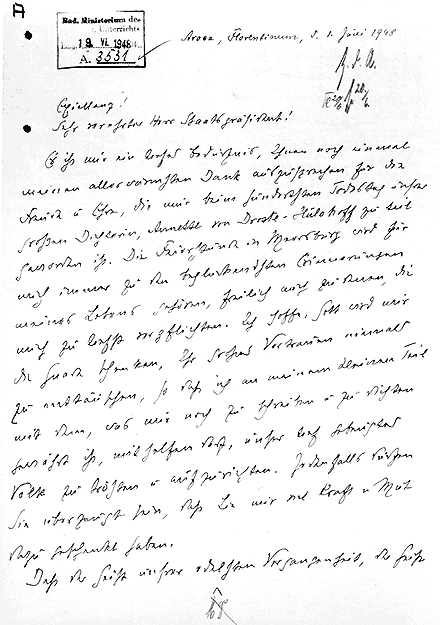 A
Bad. Ministerium des
Unterrichts
19. VI. 1948
A. 3531
Arosa, Florentinum, d. 1. Juni 1948
z. d. A.
Exzellenz!
Sehr verehrter Herr Staatspräsident!
Es ist mir ein tiefes Bedürfnis, Ihnen noch einmal
meinen allerwärmsten Dank auszusprechen für die
Freude u. Ehre, die mir beim hundertsten Todestag unserer
großen Dichterin, Annette von Droste-Hülshoff zu teil
geworden ist. Die Feierstunde in Meersburg wird für
mich immer zu den beglückendsten Erinnerungen
meines Lebens gehören, freilich auch zu denen, die
mich zu tiefst verpflichten. Ich hoffe, Gott wird mir
die Gnade schenken, Ihr großes Vertrauen niemals
zu enttäuschen, so daß ich an meinem kleinen Teil
mit dem, was mir noch zu schreiben u. zu dichten
gewährt ist, mithelfen darf, unser tief gebeugtes
Volk zu trösten u. aufzurichten. Jedenfalls dürfen
Sie überzeugt sein, daß Sie mir viel Kraft u. Mut
dazu geschenkt haben.
Daß der Geist unsrer edelsten Vergangenheit, der Geist